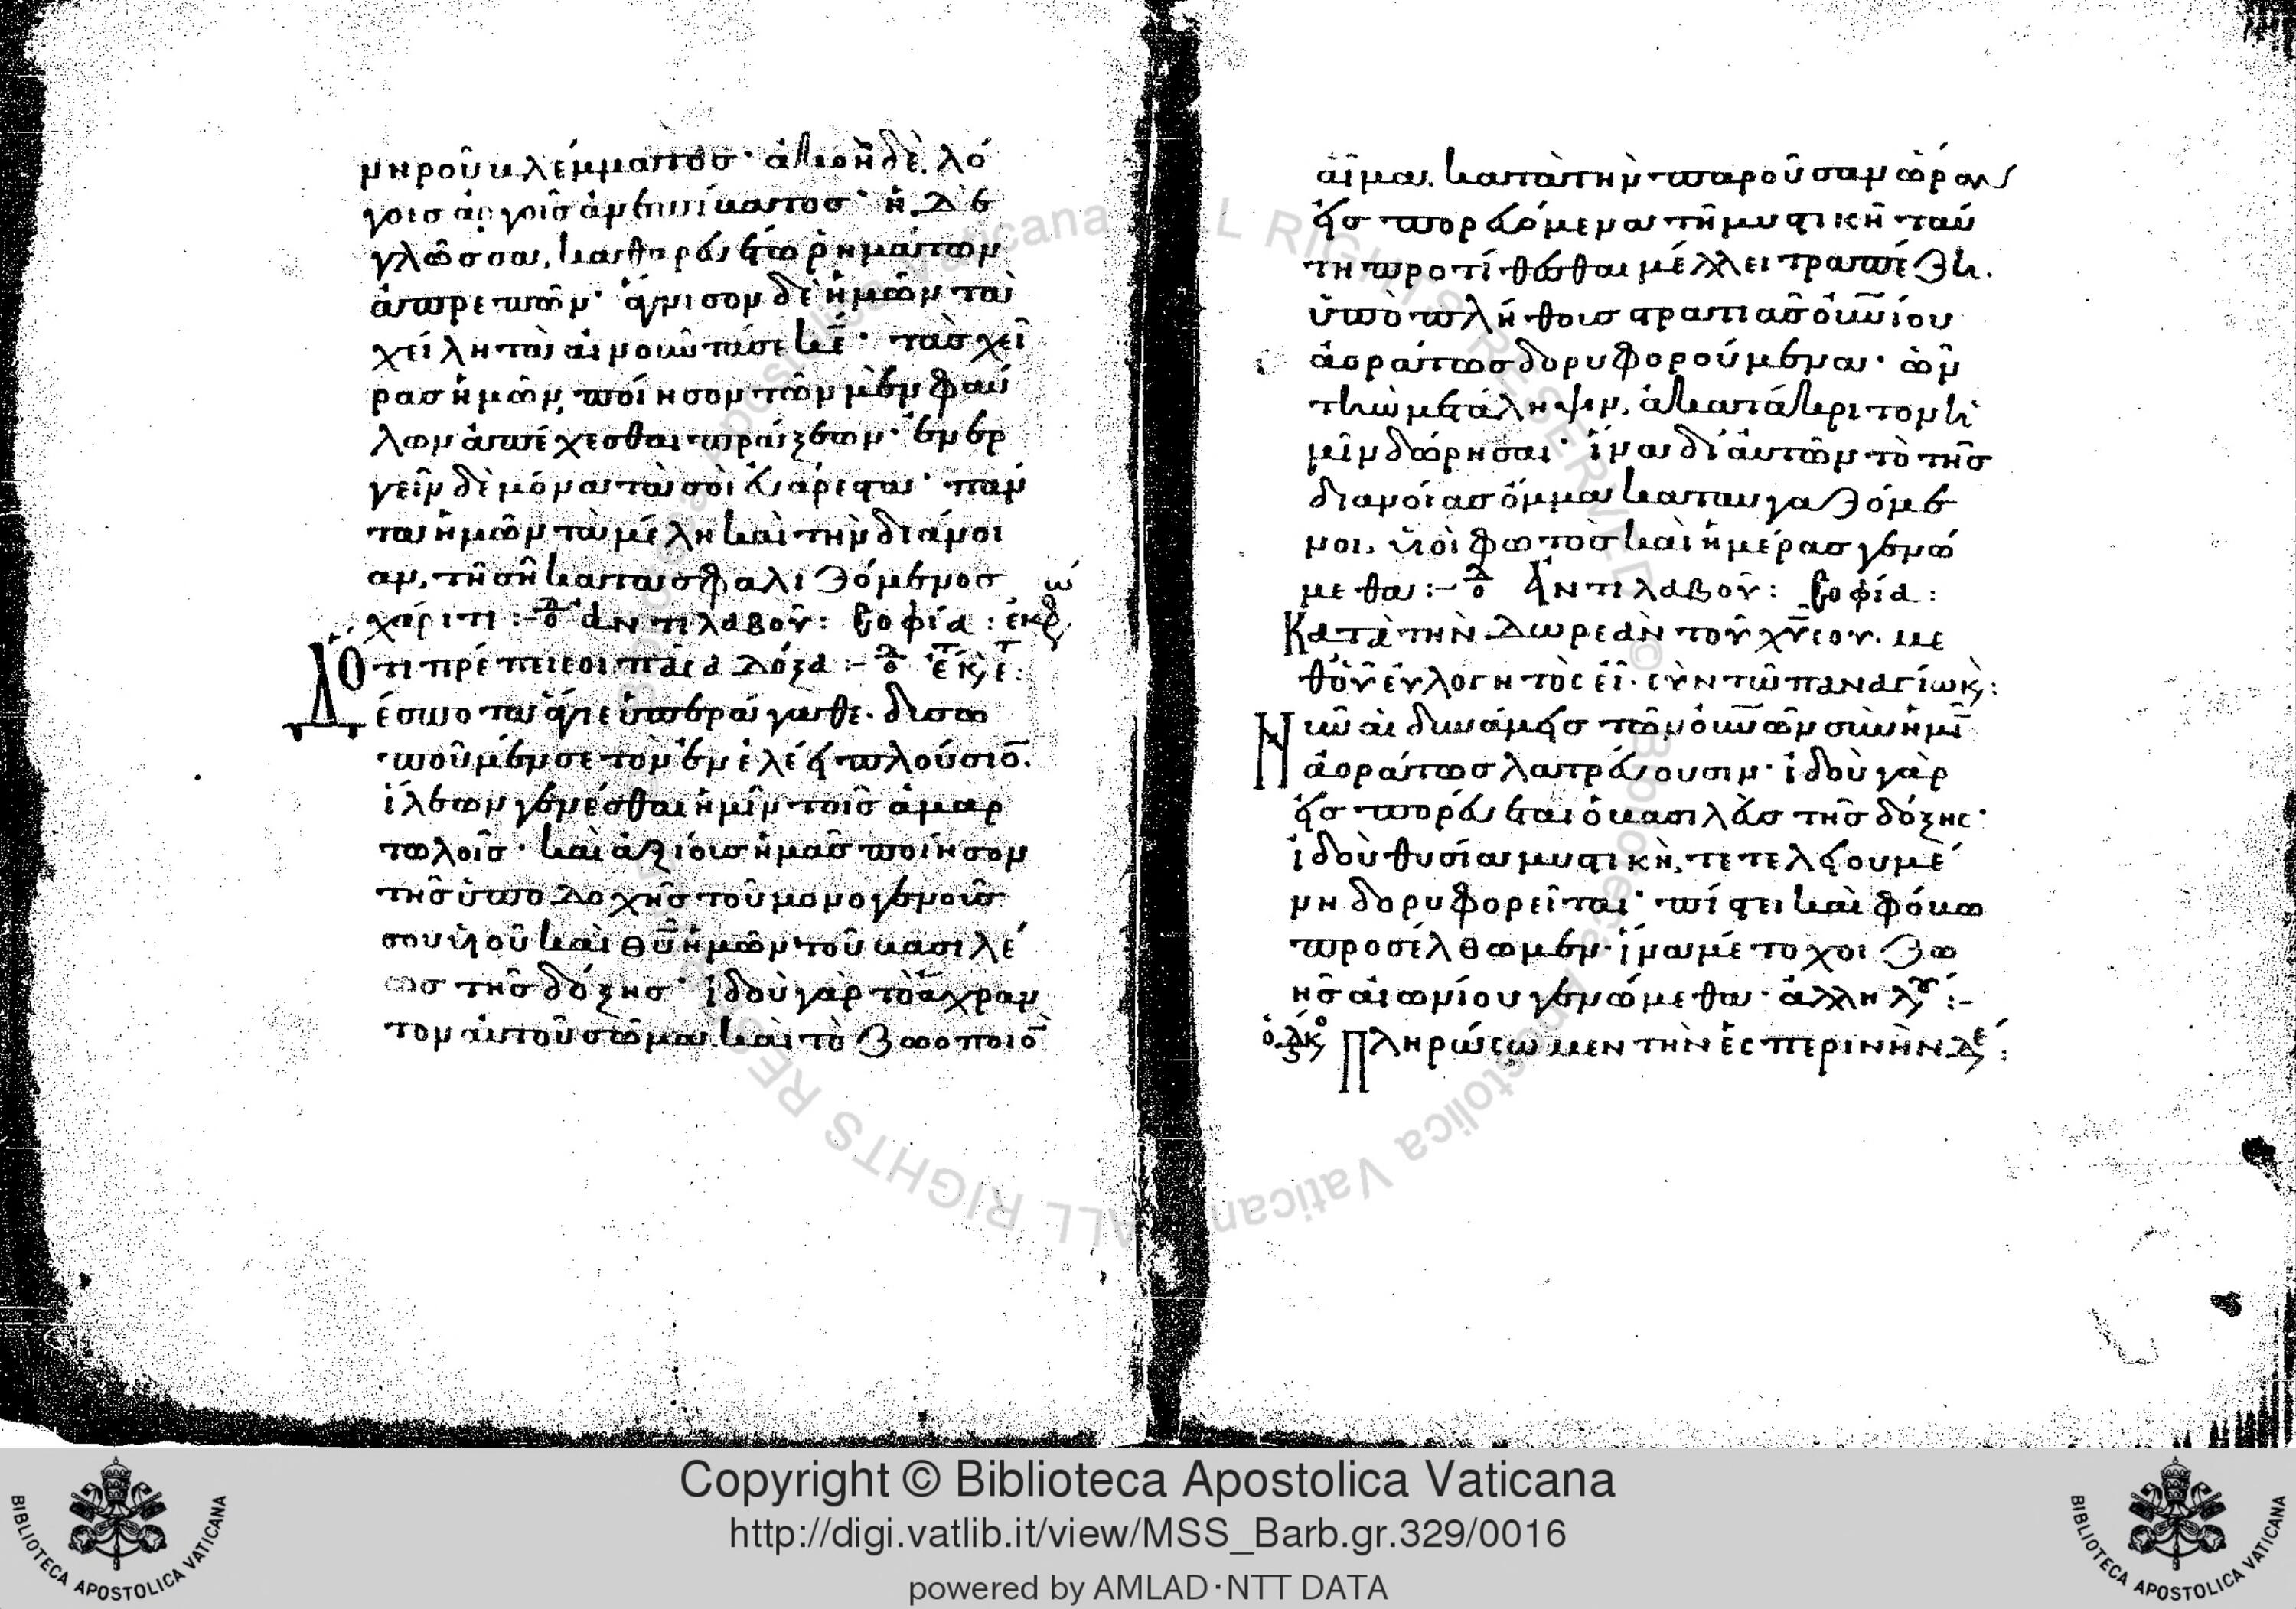 νηροῦ βλέμματος· ἀκοὴ δὲ, λό
γοις ἀργοῖς ἀνεπίβατος· ἡ δὲ
γλῶσσα, καθαρεύετω ῥημάτων
ἀπρεπῶν· ἅγνισον δὲ ἡμῶν τὰ
χείλη τὰ αἰνοῦντά σε κε̅· τὰς χεῖ
ρας ἡμῶν, ποίησον τῶν μὲν φαύ
λων ἀπέχεσθαι πράξεων· ἐνερ
γεῖν δὲ μόνα τὰ σοὶ εὐάρεστα· πάν
τα ἡμῶν τὰ μέλη καὶ τὴν διάνοι
αν, τῇ σῇ κατασφαλιζόμενος
χάριτι:- ὁ δ ἀντιλαβοῦ: σοφία: ἐκφώ
ὅτι πρέπει σοι πᾶσα δόξα:-
Δέσποτα ἅγιε ὑπεράγαθε. δυσω
ποῦμέν σε τὸν ἐν ἐλέει πλούσιο̅.
ἵλεων γενέσθαι ἡμῖν τοῖς ἁμαρ
τωλοῖς· καὶ ἀξίους ἡμᾶς ποίησον
τῆς ὑποδοχῆς τοῦ μονογενοῦς
σου υἱοῦ καὶ θυ̅ ἡμῶν τοῦ βασιλέ
ως τῆς δόξης· ἰδοὺ γὰρ τὸ ἄχραν
τον αὐτοῦ σῶμα καὶ τὸ ζωοποιὸ̅
αἷμα, κατὰ τὴν παροῦσαν ὥραν
εἰσπορευόμενα τῇ μυστικῇ ταύ
τῃ προτίθεσθαι μέλλει τραπέζη.
ὑπὸ πλήθους στρατιᾶς οὐνίου
ἀοράτως δορυφορούμενα· ὧν
τὴν μετάληψιν, ἀκατάκριτον ἡ
μῖν δώρησαι· ἵνα δι' αὐτῶν τὸ τῆς
διανοίας ὄμμα καταυγαζόμε
νοι, υἱοὶ φωτὸς καὶ ἡμέρας γενώ
μεθα:- ὁ δ Ἀντιλαβοῦ: σοφία:
Κατὰ τὴν δωρεὰν τοῦ χυ̅ σου. με
θ' οὗ εὐλογητὸς εἶ. σὺν τῷ παναγίω κ̀:
Νῦν αἱ δυνάμεις τῶν οὐνῶν σὺν ἡμῖ̅
ἀοράτως λατρεύουσιν· ἰδοὺ γὰρ
εἰσπορεύεται ὁ βασιλεὺς τῆς δόξης·
ἰδοὺ θυσία μυστικὴ, τετελειουμέ
νη δορυφορεῖται· πίστει καὶ φόβω
προσέλθωμεν· ἵνα μέτοχοι ζω
ῆς αἰωνίου γενώμεθα· ἀλληλου:-
Πληρώσωμεν τὴν ἑσπερινὴν δέ:
Copyright © Biblioteca Apostolica Vaticana
http://digi.vatlib.it/view/MSS_Barb.gr.329/0016
powered by AMLAD·NTT DATA